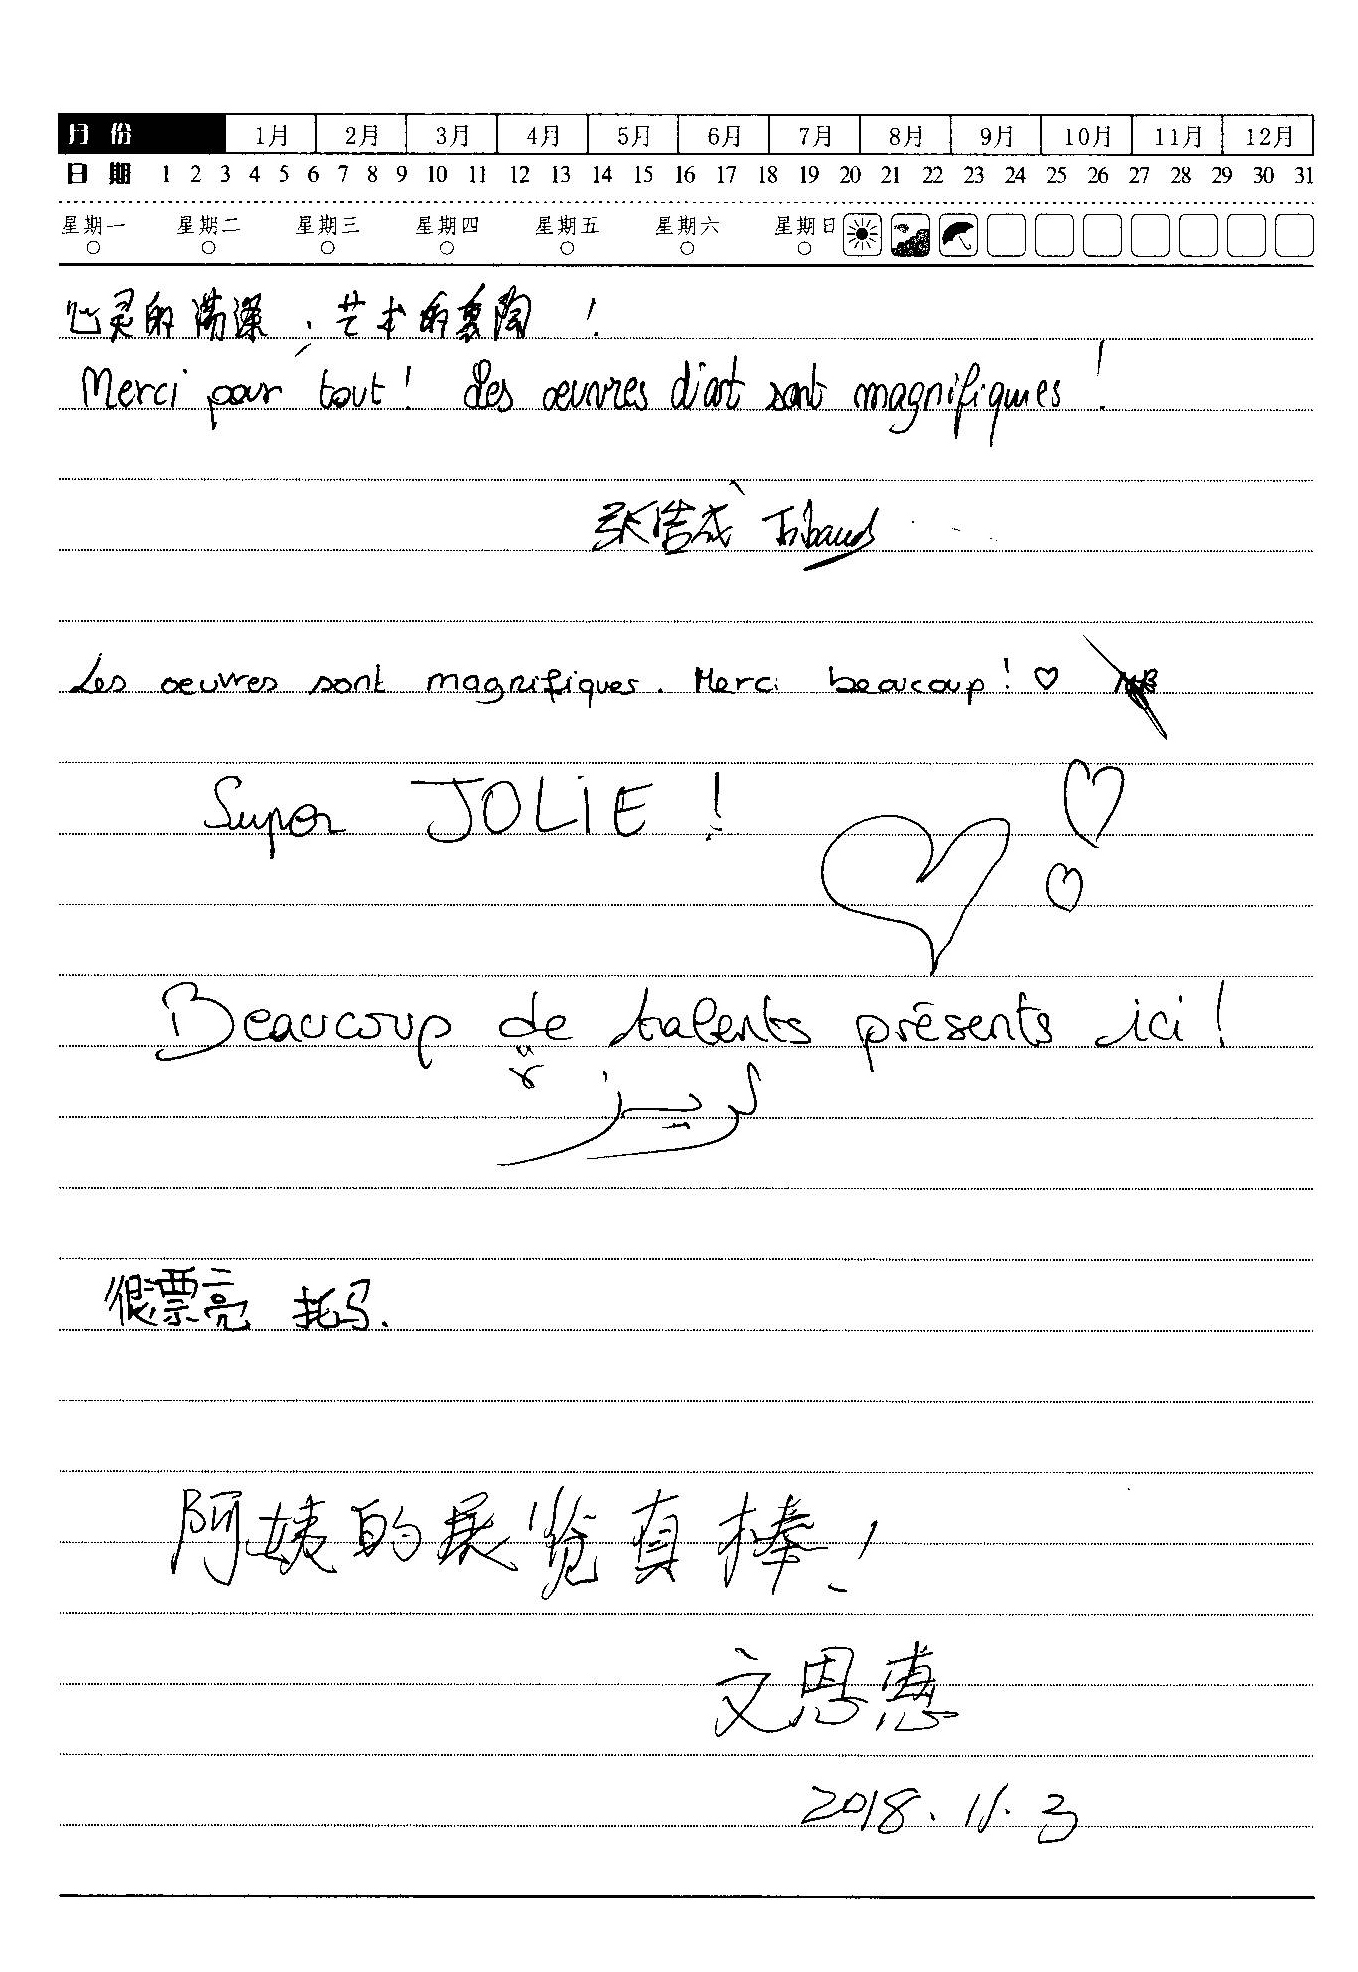 月份 1月 2月 3月 4月 5月 6月 7月 8月 9月 10月 11月 12月
日期 1 2 3 4 5 6 7 8 9 10 11 12 13 14 15 16 17 18 19 20 21 22 23 24 25 26 27 28 29 30 31
星期一 星期二 星期三 星期四 星期五 星期六 星期日
心灵的荡漾，艺术的熏陶！
Merci pour tout! Les œuvres d'art sont magnifiques!
张浩成 Thibaud
Les oeuvres sont magnifiques. Merci beaucoup! ♡
Super JOLIE!
Beaucoup de talents présents ici!
很票亮 托马.
阿姨的展览真棒!
文恩惠
2018.11.3